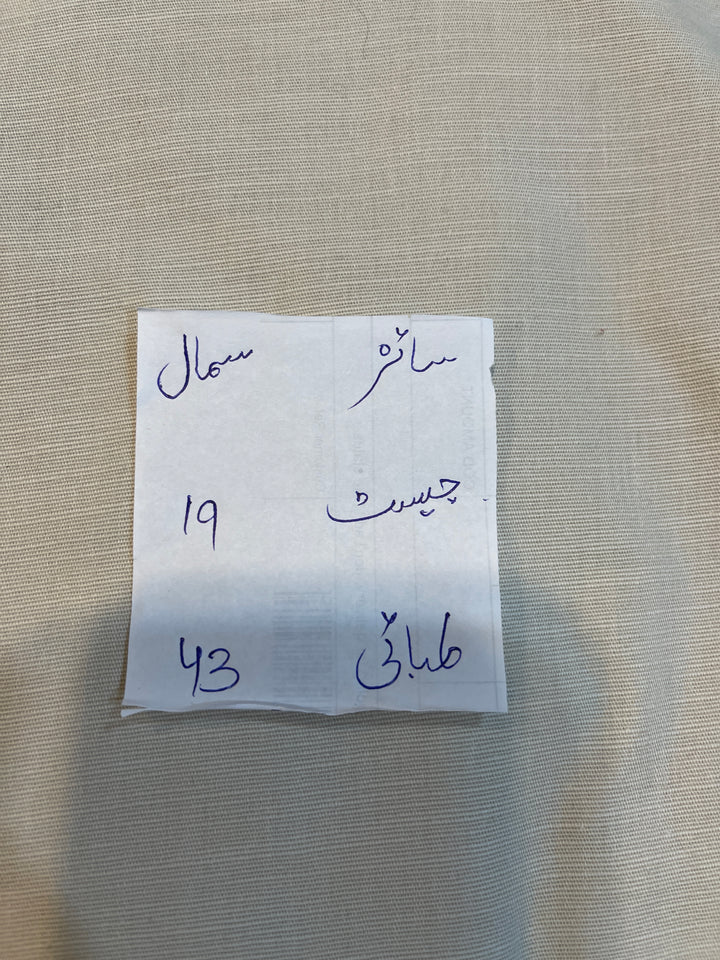 سائز سمال
چیسٹ 19
لمبائی 43